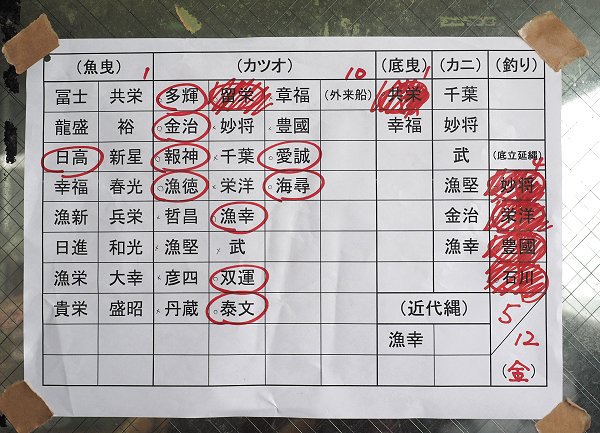 (魚曳) 1 (カツオ) 10 (底曳) 1 (カニ) (釣り)
冨士 共栄 多輝 留栄 章福 (外来船) 共栄 千葉
龍盛 裕 金治 妙将 豊國 幸福 妙将
日高 新星 報神 千葉 愛誠 武 (底立延縄) 4
幸福 春光 漁徳 栄洋 海尋 漁堅 妙将
漁新 兵栄 哲昌 漁幸 金治 栄洋
日進 和光 漁堅 武 漁幸 豊國
漁栄 大幸 彦四 双運 石川
貴栄 盛昭 丹蔵 泰文 (近代縄) 5
漁幸 12
(金)